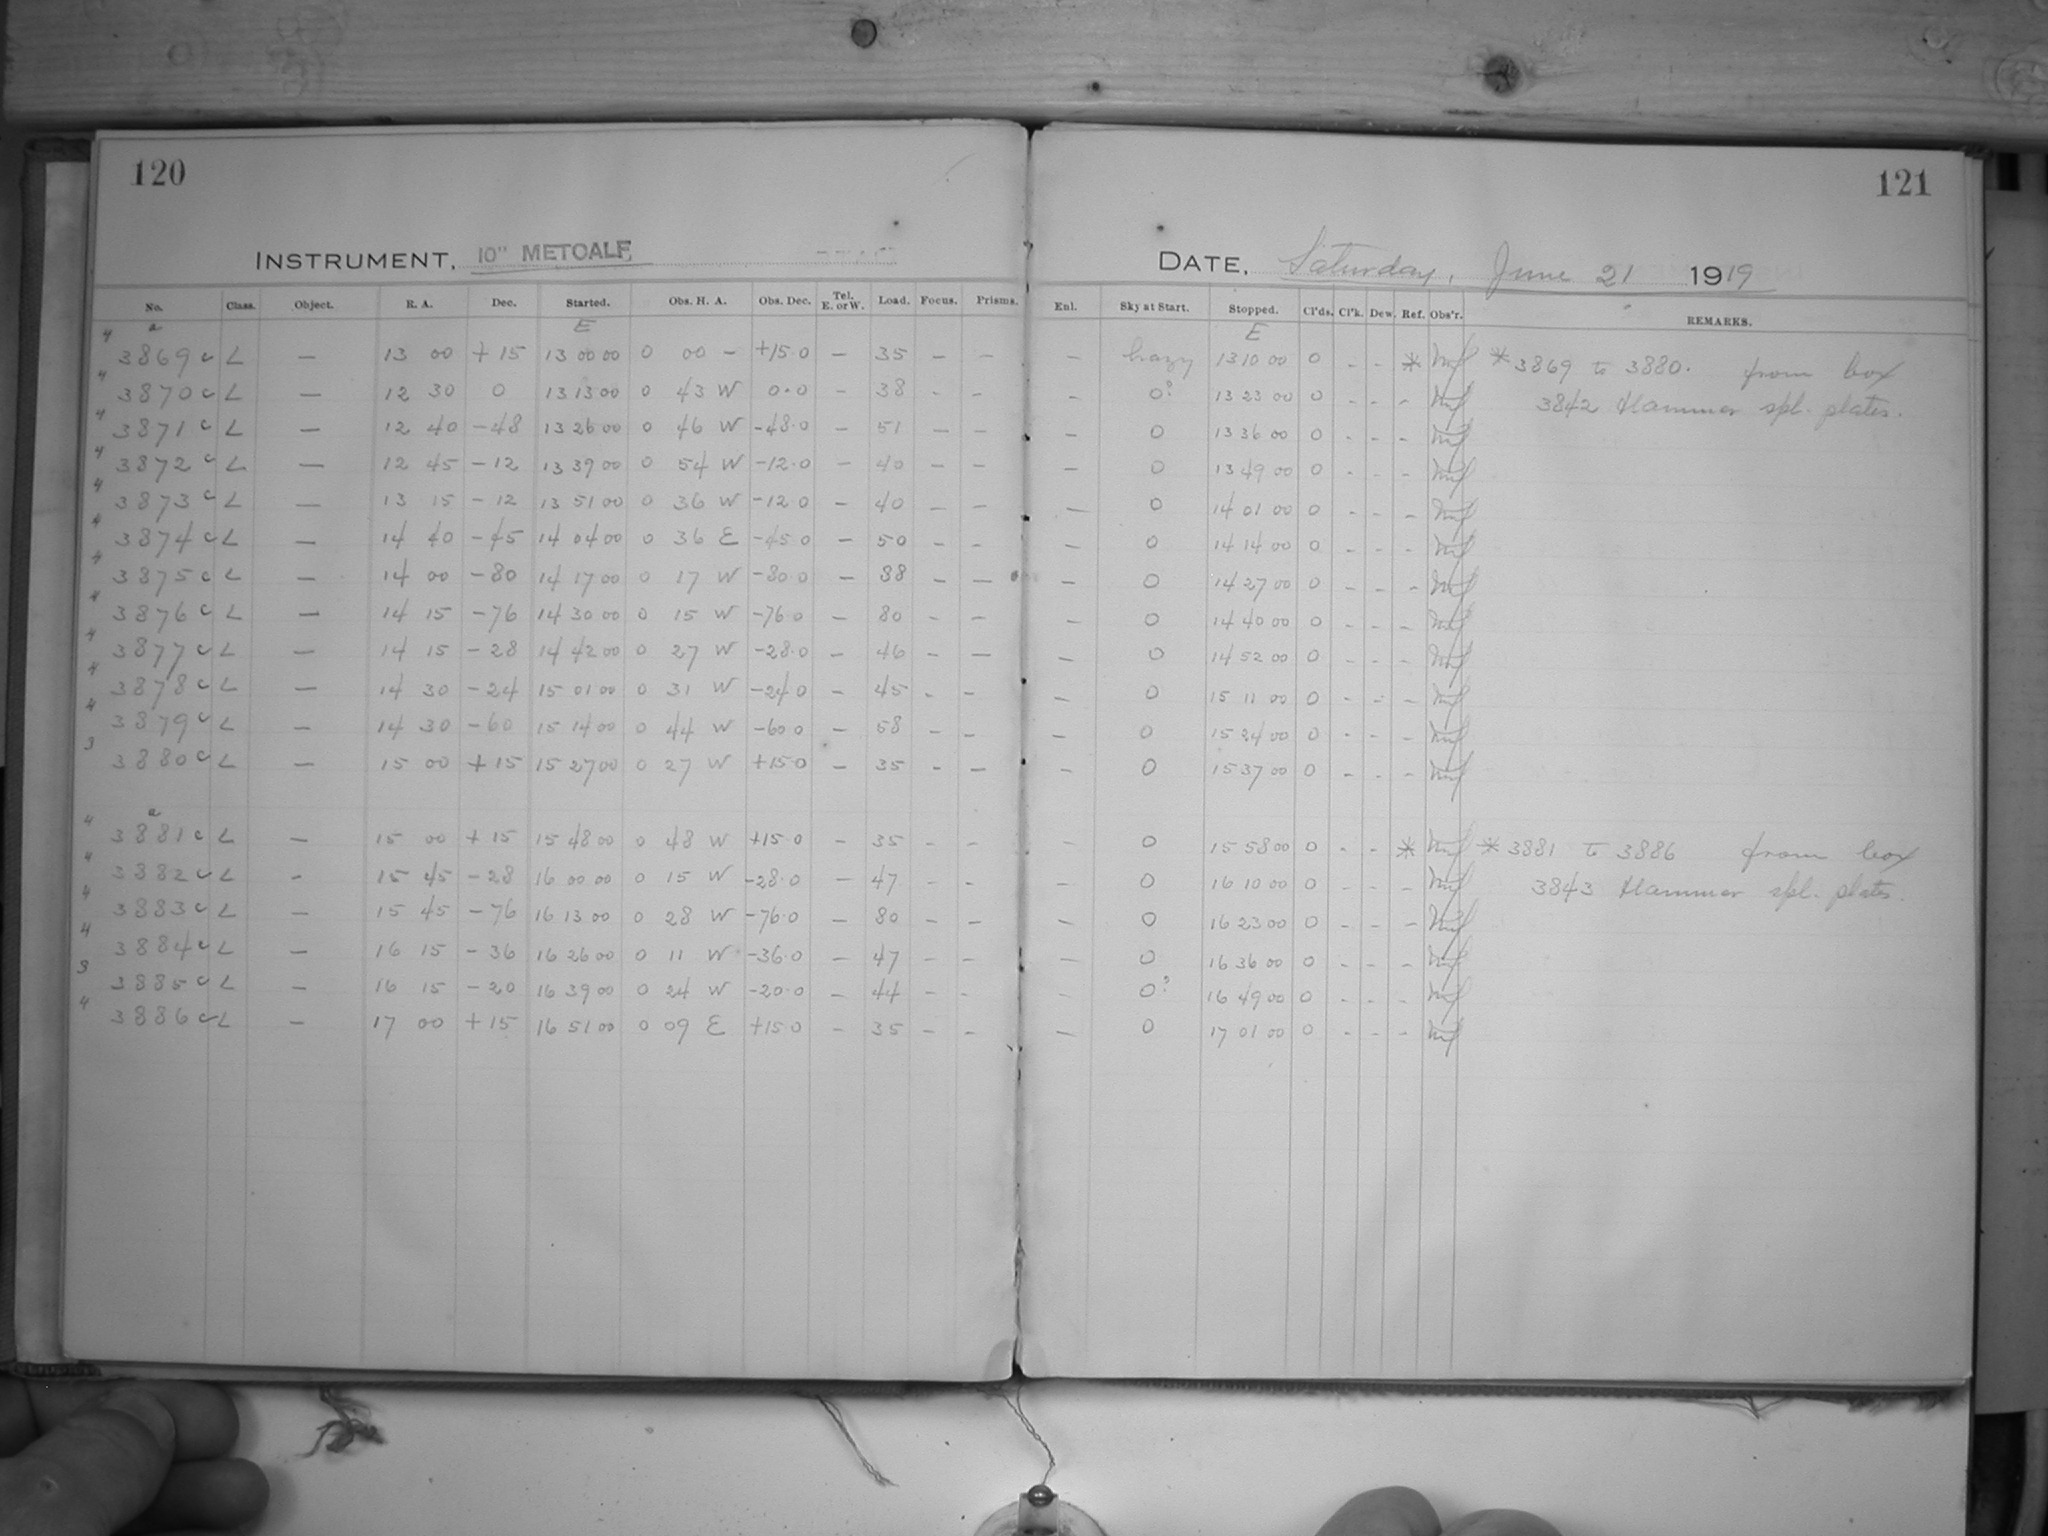 120
INSTRUMENT, 10" METCALF
No. Class. Object. R. A. Dec. Started. Obs. H. A. Obs. Dec. Tel. E. or W. Load. Focus. Prisms.
a E
4 3869 c L — 13 00 +15 13 00 00 0 00 - +15.0 - 35 - -
4 3870 c L — 12 30 0 13 13 00 0 43 W 0.0 - 38 - -
4 3871 c L — 12 40 -48 13 26 00 0 46 W -48.0 - 51 - -
4 3872 c L — 12 45 -12 13 39 00 0 54 W -12.0 - 40 - -
4 3873 c L — 13 15 -12 13 51 00 0 36 W -12.0 - 40 - -
4 3874 c L — 14 40 -45 14 04 00 0 36 E -45.0 - 50 - -
4 3875 c L — 14 00 -80 14 17 00 0 17 W -80.0 - 88 - -
4 3876 c L — 14 15 -76 14 30 00 0 15 W -76.0 - 80 - -
4 3877 c L — 14 15 -28 14 42 00 0 27 W -28.0 - 46 - -
4 3878 c L — 14 30 -24 15 01 00 0 31 W -24.0 - 45 - -
4 3879 c L — 14 30 -60 15 14 00 0 44 W -60.0 - 58 - -
3 3880 c L — 15 00 +15 15 27 00 0 27 W +15.0 - 35 - -
a
4 3881 c L — 15 00 +15 15 48 00 0 48 W +15.0 - 35 - -
4 3882 c L - 15 45 -28 16 00 00 0 15 W -28.0 - 47 - -
4 3883 c L — 15 45 -76 16 13 00 0 28 W -76.0 - 80 - -
4 3884 c L — 16 15 -36 16 26 00 0 11 W -36.0 - 47 - -
3 3885 c L — 16 15 -20 16 39 00 0 24 W -20.0 - 44 - -
4 3886 c L — 17 00 +15 16 51 00 0 09 E +15.0 - 35 - -
121
DATE, Saturday, June 21 1919
Enl. Sky at Start. Stopped. Cl'ds. Cl'k. Dew. Ref. Obs'r. REMARKS.
E
— hazy 13 10 00 0 - - * *3869 to 3880. from box
— 0? 13 23 00 0 - - - 3842 Hammer spl. plates.
— 0 13 36 00 0 - - -
— 0 13 49 00 0 - - -
— 0 14 01 00 0 - - -
— 0 14 14 00 0 - - -
— 0 14 27 00 0 - - -
— 0 14 40 00 0 - - -
— 0 14 52 00 0 - - -
— 0 15 11 00 0 - - -
— 0 15 24 00 0 - - -
— 0 15 37 00 0 - - -
— 0 15 58 00 0 - - * *3881 to 3886 from box
— 0 16 10 00 0 - - - 3843 Hammer spl. plates.
— 0 16 23 00 0 - - -
— 0 16 36 00 0 - - -
— 0? 16 49 00 0 - - -
— 0 17 01 00 0 - - -